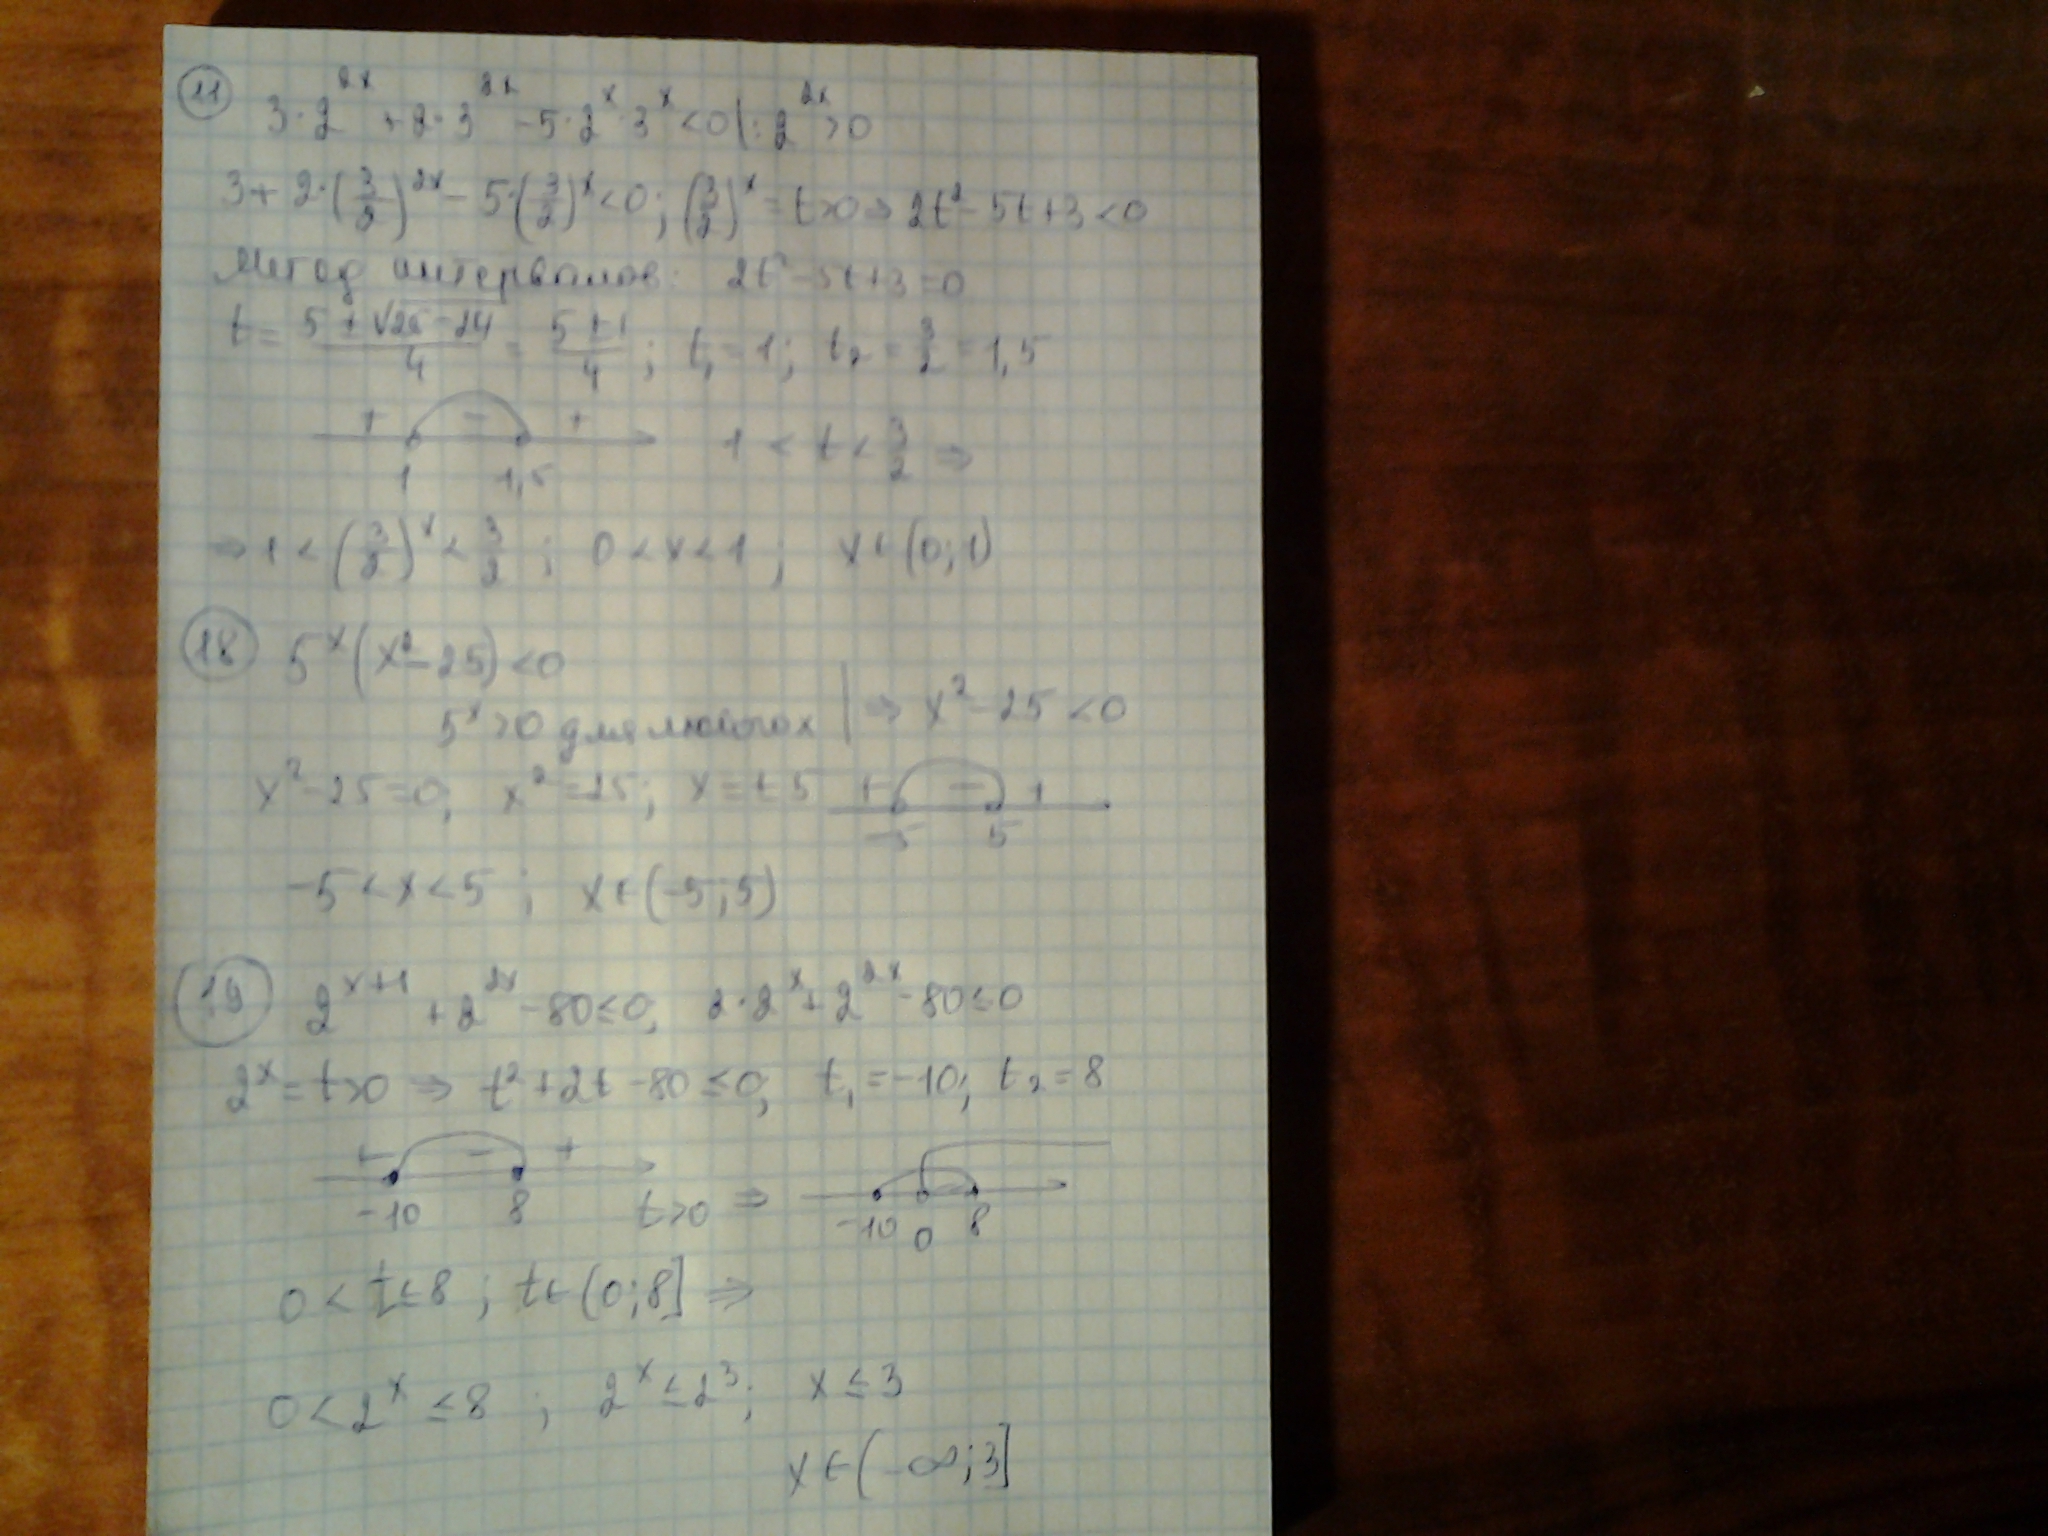 11 3·2^{2x} + 2·3^{2x} - 5·2^x·3^x < 0 | : 2^{2x} > 0
3 + 2·(3/2)^{2x} - 5·(3/2)^x < 0; (3/2)^x = t > 0 ⇒ 2t² - 5t + 3 < 0
Метод интервалов: 2t² - 5t + 3 = 0
t = (5 ± √(25 - 24))/4 = (5 ± 1)/4; t₁ = 1; t₂ = 3/2 = 1,5
+ - +
1 1,5 1 < t < 3/2 ⇒
⇒ 1 < (3/2)^x < 3/2; 0 < x < 1; x ∈ (0; 1)
18 5^x(x² - 25) < 0
5^x > 0 для любого x | ⇒ x² - 25 < 0
x² - 25 = 0; x² = 25; x = ± 5 + - +
-5 5
-5 < x < 5; x ∈ (-5; 5)
19 2^{x+1} + 2^{2x} - 80 ≤ 0; 2·2^x + 2^{2x} - 80 ≤ 0
2^x = t > 0 ⇒ t² + 2t - 80 ≤ 0; t₁ = -10; t₂ = 8
+ - +
-10 8 t > 0 ⇒ -10 0 8
0 < t ≤ 8; t ∈ (0; 8] ⇒
0 < 2^x ≤ 8; 2^x ≤ 2³; x ≤ 3
x ∈ (-∞; 3]